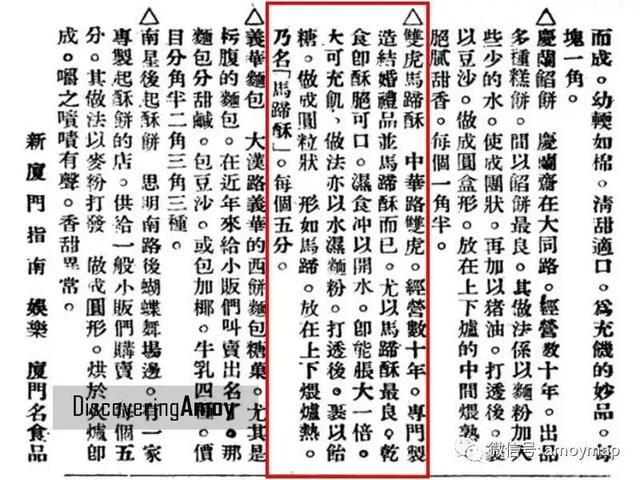 而成。幼輭如棉。清甜適口。爲充饑的妙品。每
塊一角。
△慶蘭餡餅　慶蘭齋在大同路。經營數十年。出品
多種糕餅。間以餡餅最良。其做法係以麵粉加入
些少的水。使成團狀。再加以猪油。打透後。裂
以豆沙。做成圓盒形。放在上下爐的中間煨熟。
肥膩甜香。每個一角半。
△雙虎馬蹄酥　中華路雙虎。經營數十年。專門製
造結婚禮品並馬蹄酥而已。尤以馬蹄酥最良。乾
食卽酥脆可口。濕食冲以開水。卽能張大一倍。
大可充飢。做法亦以水濕麵粉。打透後。裹以飴
糖。做成圓粒狀　形如馬蹄。放在上下煨爐熱。
乃名「馬蹄酥」。每個五分。
△義華麵包　大漢路義華的西餅麵包糖菓。尤其是
枵腹的麵包。在近年來給小販們叫賣出名。那
麵包分甜鹹。包豆沙。或包加椰。牛乳四種。價
目分角半二角三角三種。
△南星後起酥餅　思明南路後蝴蝶舞塲邊。有一家
專製起酥餅的店。供給一般小販們購賣　每個五
分。其做法以麥粉打發　做成圓形。烘於火爐卽
成。嚼之嘖嘖有聲。香甜異常。
新廈門指南　娛樂　廈門名食品
DiscoveringAmoy
微信号:amoymap